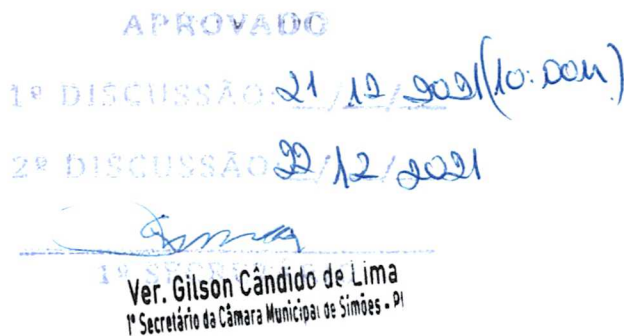 APROVADO
1ª DISCUSSÃO: 21/12/2021 (10:00h)
2ª DISCUSSÃO 22/12/2021
1º SECRE
Ver. Gilson Cândido de Lima
1º Secretário da Câmara Municipal de Simões - PI